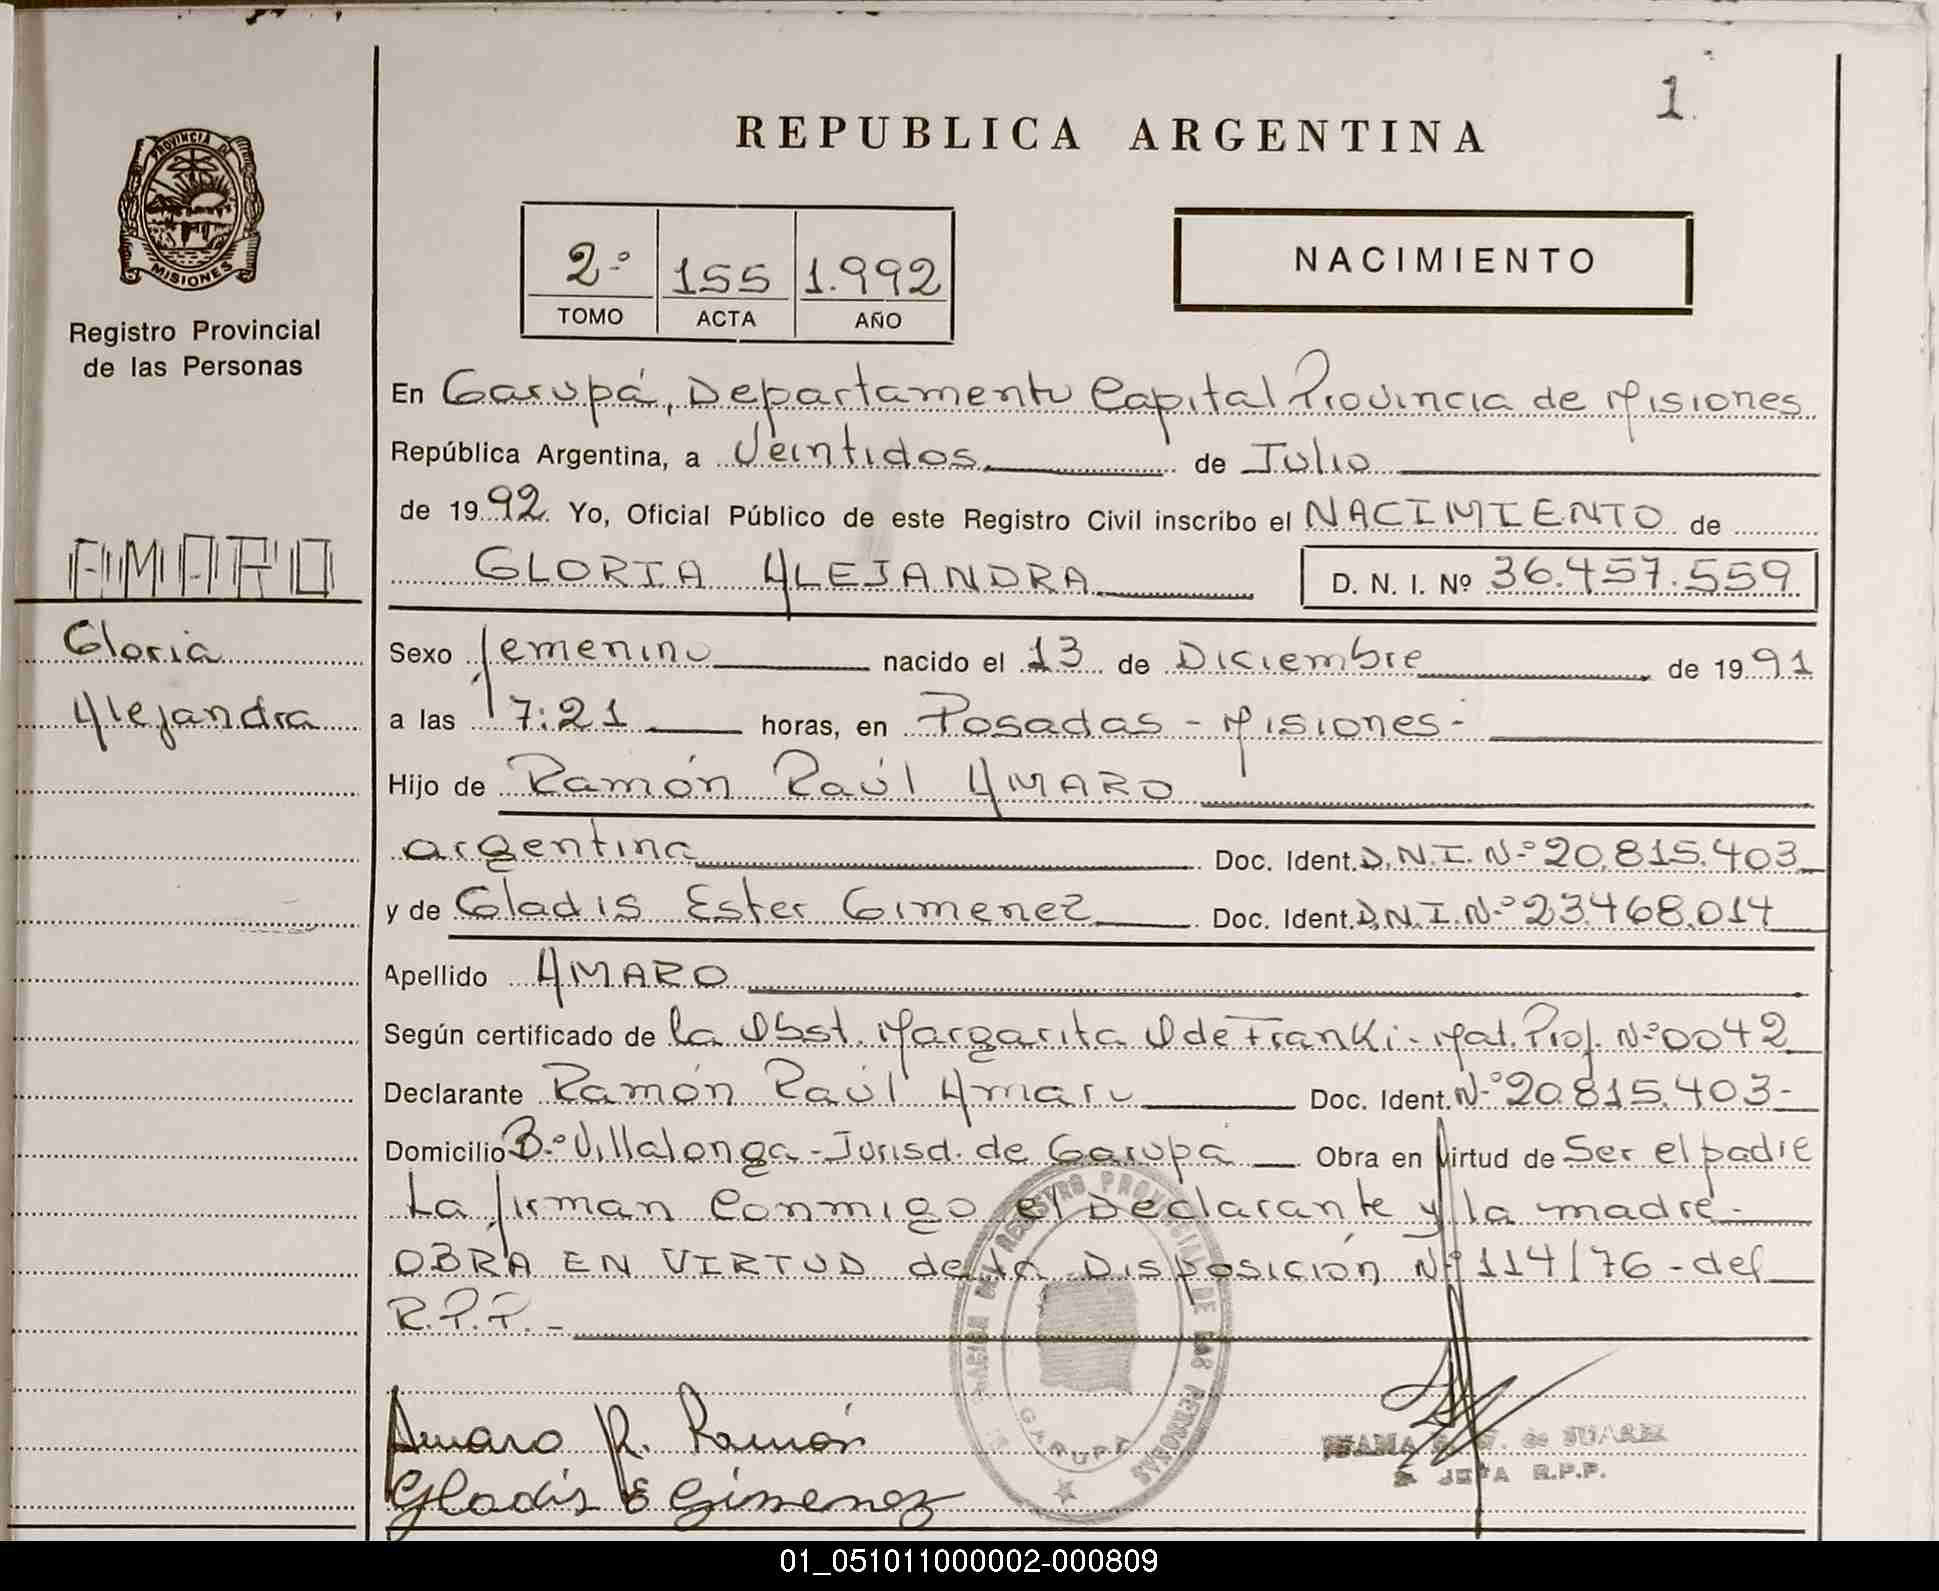 1.
REPUBLICA ARGENTINA
PROVINCIA DE
MISIONES
Registro Provincial
de las Personas
2º 155 1.992
TOMO ACTA AÑO
NACIMIENTO
En Garupá, Departamento Capital Provincia de Misiones
República Argentina, a Veintidos de Julio
de 1992. Yo, Oficial Público de este Registro Civil inscribo el NACIMIENTO de
GLORIA ALEJANDRA D. N. I. Nº 36.457.559
AMARO
Gloria
Alejandra
Sexo femenino nacido el 13 de Diciembre de 1991
a las 17:21 horas, en Posadas - Misiones -
Hijo de Ramón Raúl AMARO
argentina Doc. Ident. D.N.I. Nº 20.815.403
y de Gladis Ester Gimenez Doc. Ident. D.N.I. Nº 23.468.014
Apellido AMARO
Según certificado de la Obst. Margarita O de Franki - Mat. Prof. Nº 0042
Declarante Ramón Raúl Amaro Doc. Ident. Nº 20.815.403-
Domicilio Bº Villalonga - Jurisd. de Garupá Obra en virtud de Ser el padre
La firman conmigo el Declarante y la madre.-
OBRA EN VIRTUD de la Disposición Nº 114/76 - del
R.P.P. -
Amaro R. Ramón
Gladis E Gimenez
DEL REGISTRO PROVINCIAL DE LAS PERSONAS
GARUPA
de SUAREZ
JEFA R.P.P.
01_051011000002-000809